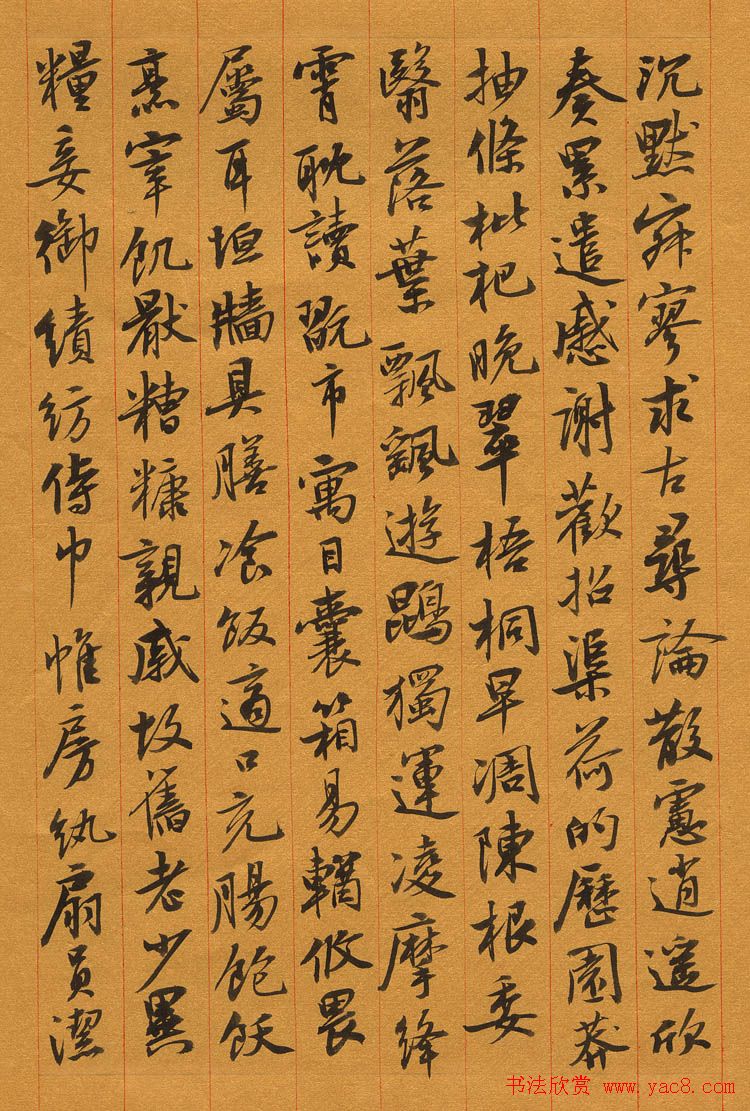 沉默寂寥求古尋論散慮逍遥欣
奏累遣慼謝歡招渠荷的歷園莽
抽條枇杷晚翠梧桐早凋陳根委
翳落葉飄飖遊鵾獨運凌摩絳
霄耽讀翫市寓目囊箱易輶攸畏
屬耳垣牆具膳飡飯適口充腸飽飫
烹宰飢猒糟糠親戚故舊老少異
糧妾御績紡侍巾帷房紈扇員潔
书法欣赏 www.yac8.com